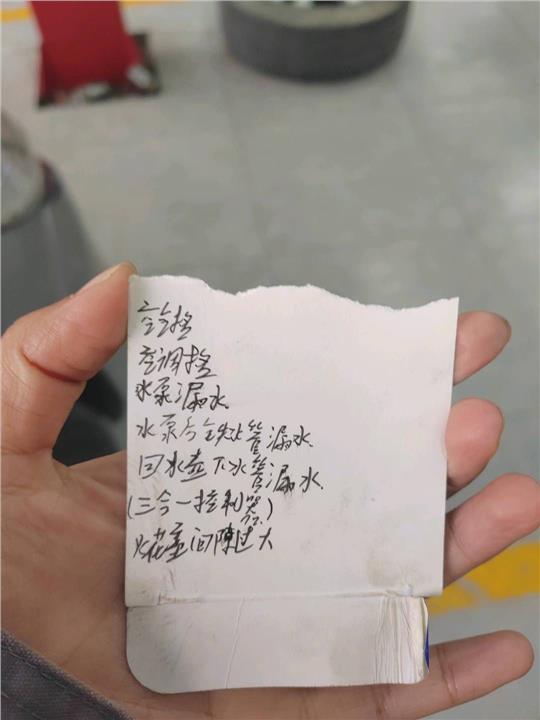 空调格
水泵漏水
水泵后铁水管漏水
回水壶下水管漏水
(三合一控制器)
火花塞间隙过大